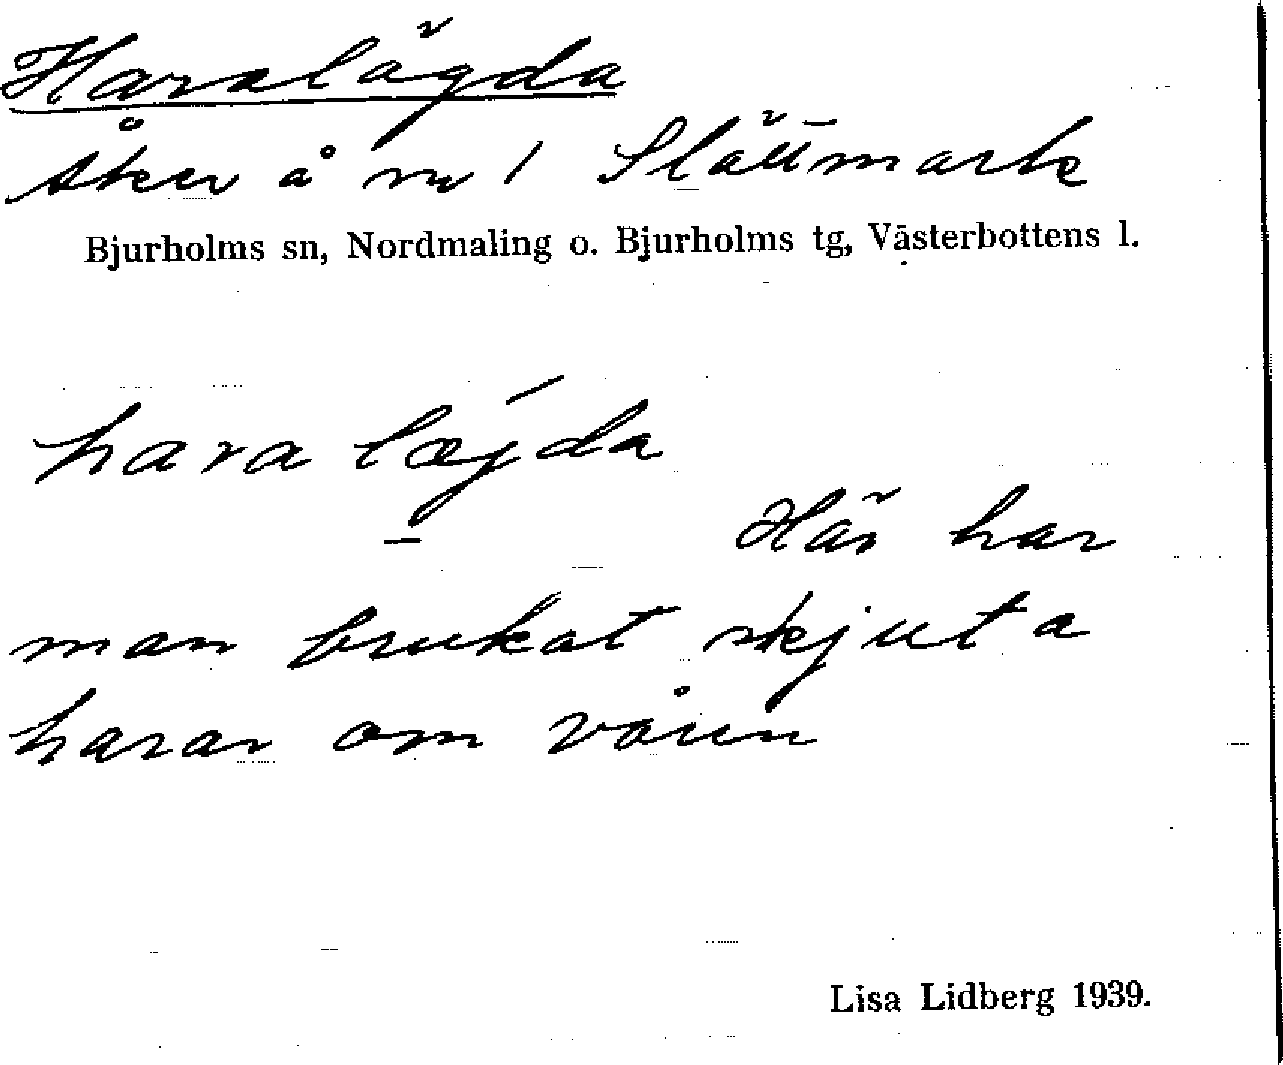 Haralägda
åker å nr 1 Slättmark
Bjurholms sn, Nordmaling o. Bjurholms tg, Västerbottens l.
hara lǽjda
Här har
man brukat skjuta
harar om våren
Lisa Lidberg 1939.